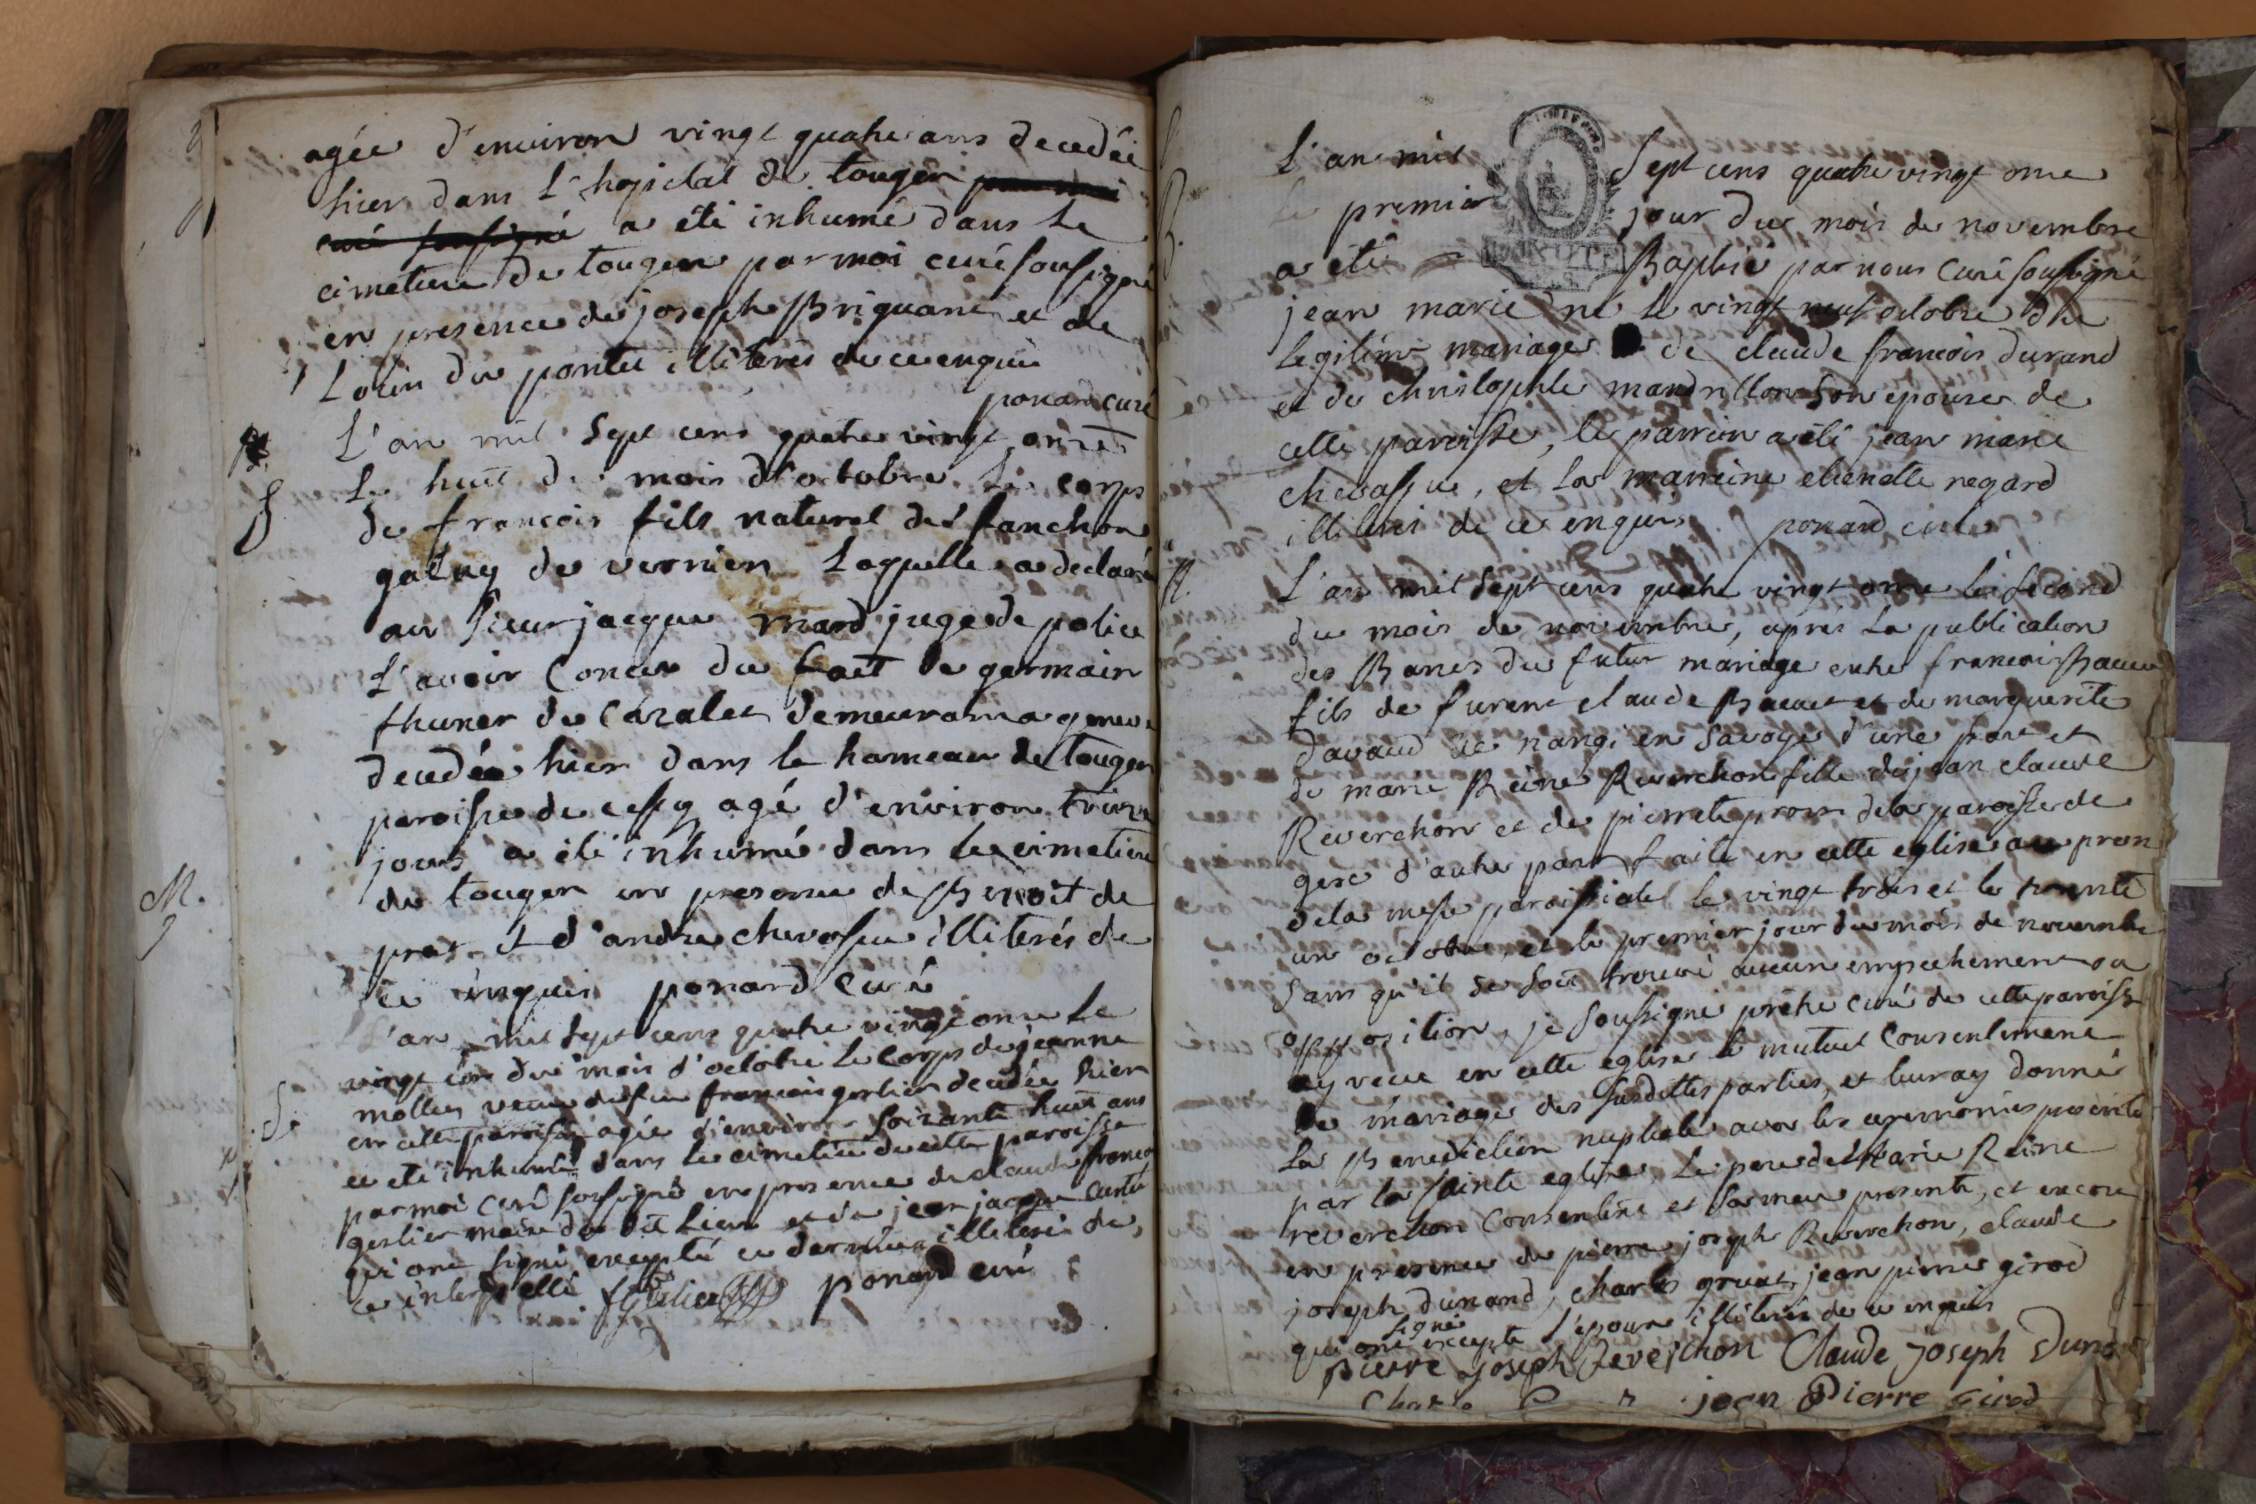 agée d'environ vingt quatre ans decedée
hier dans l'hopidat de tougin par moi
curé sousigné a été inhumé dans le
cimetiere de tougin par moi curé sousigné
en presence de joseph Briquant et de
du pontet illiterés de ce enquis
ponard curé
L'an mil sept cens quatre vingt onze
Le huit du mois d'octobre le corps
de francois fils naturel de fanchon
galay de vernier laquelle a declaré
au sieur jacque juge de police
l'avoir concu du fait de germain
thuner de demeurant a geneve
decedée hier dans le hameau de tougin
paroisse de cessy agé d'environ treize
jours a été inhumé dans le cimetiere
de tougin en presence de Benoit de
prat et d'andre chevassu illiterés de
ce inquis ponard curé
L'an mil sept cens quatre vingt onze le
vingt cinq du mois d'octobre le corps de jeanne
veuve de feu francois gerlier decedée hier
en cette paroisse agée d'environ soixante huit ans
a été inhumé dans le cimetiere de cette paroisse
par moi curé sousigné en presence de claude francois
gerlier maire du dit lieu et de jean jacque
qui ont signé excepté ce dernier illiteré de
ce interpellé ponard curé
S.
M.
L'an mil sept cens quatre vingt onze
le premier jour du mois de novembre
a été Baptisé par nous curé sousigné
jean marie né le vingt neuf octobre du
legitime mariage de claude francois durand
et de christophle mandrillon son epouse de
cette paroisse, le parrein a été jean marie
chevassue, et la marreine etienette regard
illiteré de ce enquis ponard curé
L'an mil sept cens quatre vingt onze le second
du mois de novembre, après la publication
des Bancs du futur mariage entre francois
fils de furent claude et de marguerite
davaud de nangi en savoye d'une part et
de marie Reine Reverchon fille de jean claude
Reverchon et de pierrette de la paroisse de
gex d'autre part faite en cette eglise au pron
de la messe paroissiale le vingt trois et le trente
un octobre, et le premier jour du mois de novembre
sans qu'il se soit trouvé aucun empechement ou
opposition, je sousigné pretre curé de cette paroisse
ay recue en cette eglise le mutuel consentement
de mariage des susdittes parties, et leur ay donné
la Benediction nuptiale avec les ceremonies prescrite
par la sainte eglise le pere de Marie Reine
reverchon consentant et sa mere presente, et encore
en presence de pierre joseph Reverchon, claude
joseph dunand, charles gruat, jean pierre girod
signé
qui ont excepte l'epouse illiterée de ce enquis
pierre joseph Reverchon Claude joseph Duna
jean Pierre Girod